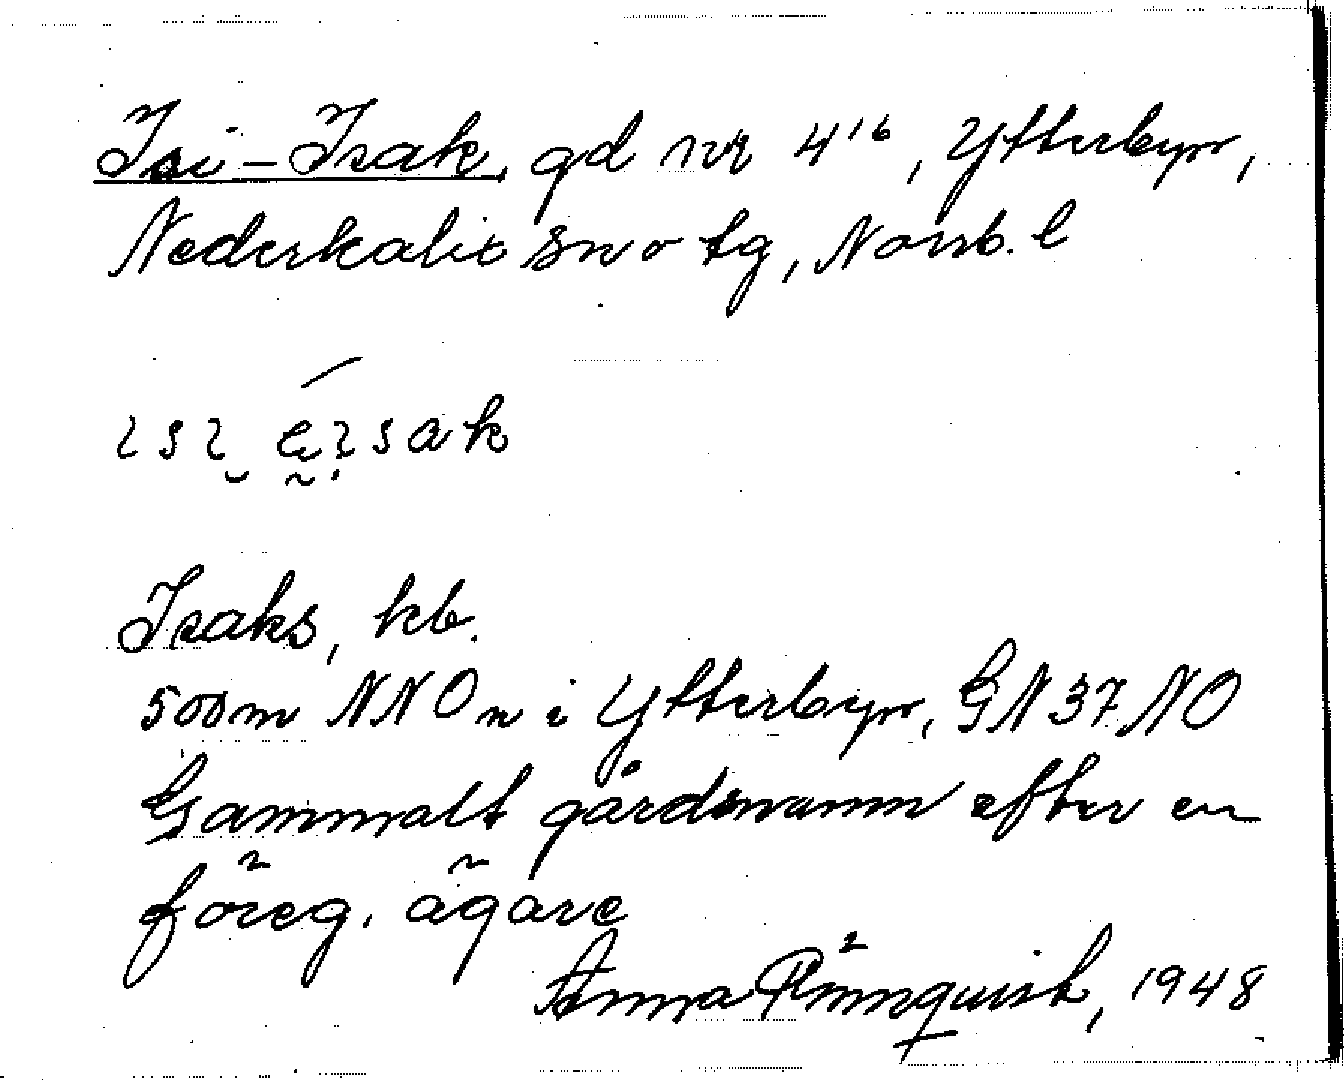 Isi-Isak, gd nr 4¹⁶, Ytterbyn,
Nederkalix sn o tg, Norrb. l
Isaks, kb.
500 m NNO n i Ytterbyn, GN 37 NO
Gammalt gårdsnamn efter en
föreg. ägare
Anna Rönnquist, 1948